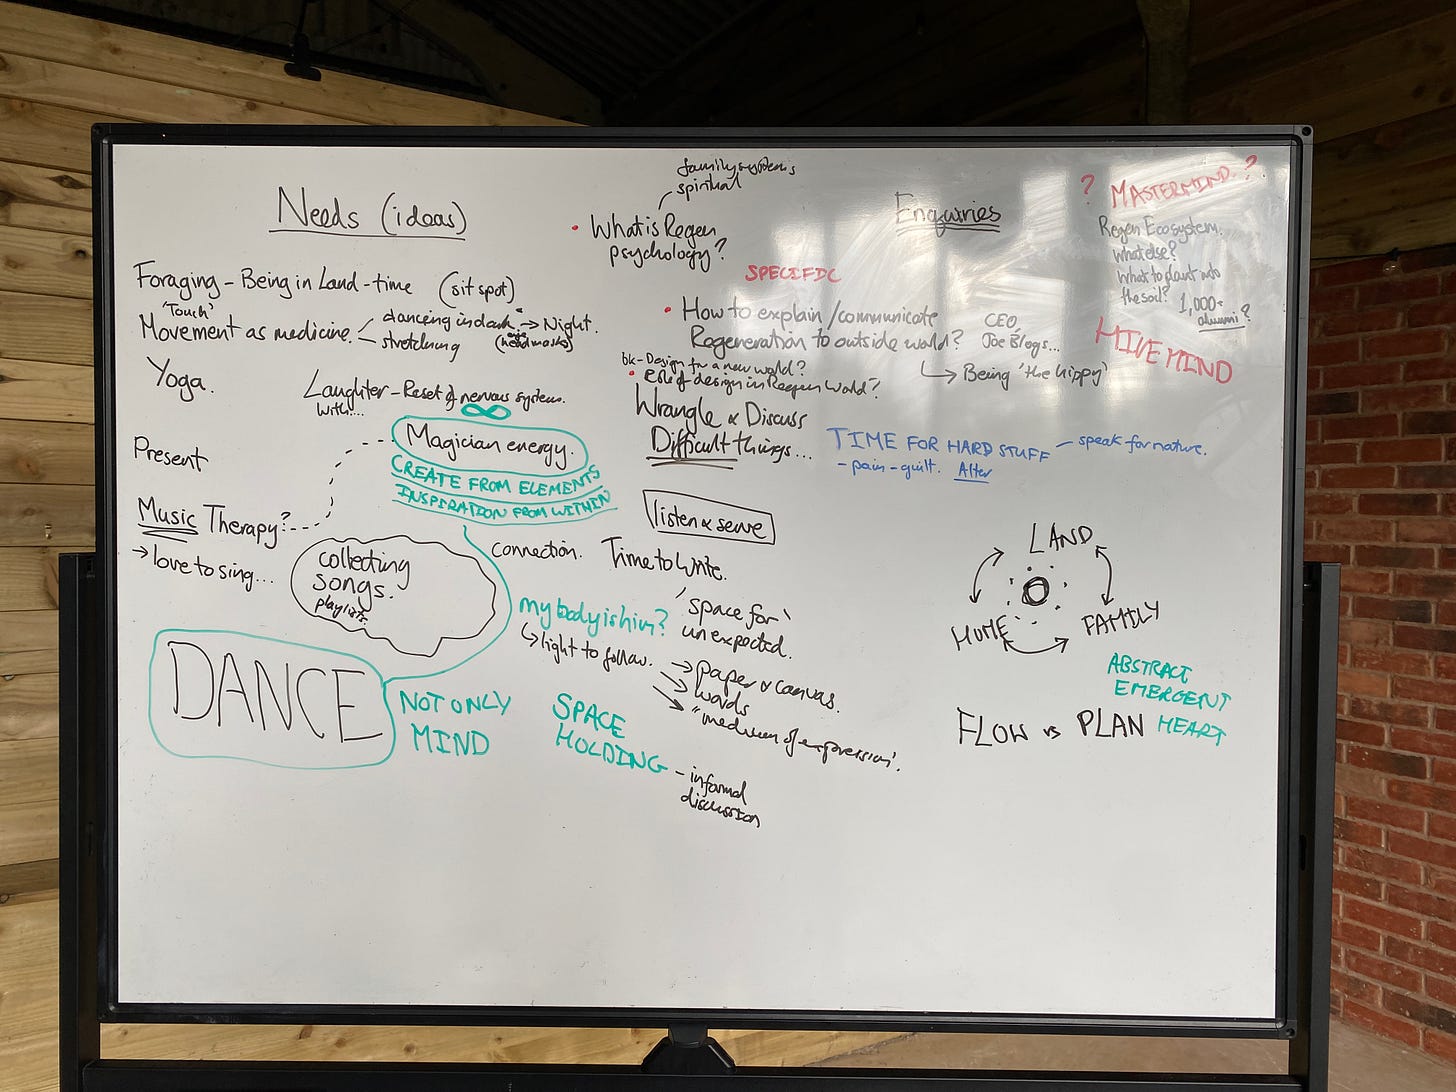 Needs (ideas)
Foraging - Being in Land-time (sit spot)
'Touch'
Movement as medicine.
dancing in dark → Night.
(head masks)
stretching
Yoga.
Laughter - Reset of nervous system.
with....
∞
Magician energy.
CREATE FROM ELEMENTS
INSPIRATION FROM WITHIN
Present
Music Therapy?
→ love to sing...
collecting
songs.
playlists.
DANCE
NOT ONLY
MIND
connection.
Time to write.
'space for'
unexpected.
my body is him?
↳ light to follow.
→ paper & canvas.
→ words
→ "medium of expression'.
SPACE
HOLDING
- informal
discussion
family systems
spiritual
• What is Regen
psychology?
Enquiries
SPECIFIC
• How to explain/communicate
Regeneration to outside world?
CEO,
Joe Blogs...
↳ Being 'the hippy'
bk - Design for a new world?
• Role of design in Regen World?
Wrangle & Discuss
Difficult things...
TIME FOR HARD STUFF - speak for nature.
- pain - guilt. Alter
listen & serve
? MASTERMIND. ?
Regen Ecosystem.
What else?
What to plant into
the soil?
1,000+
alumni?
HIVE MIND
LAND
HOME
FAMILY
ABSTRACT
EMERGENT
HEART
FLOW vs PLAN